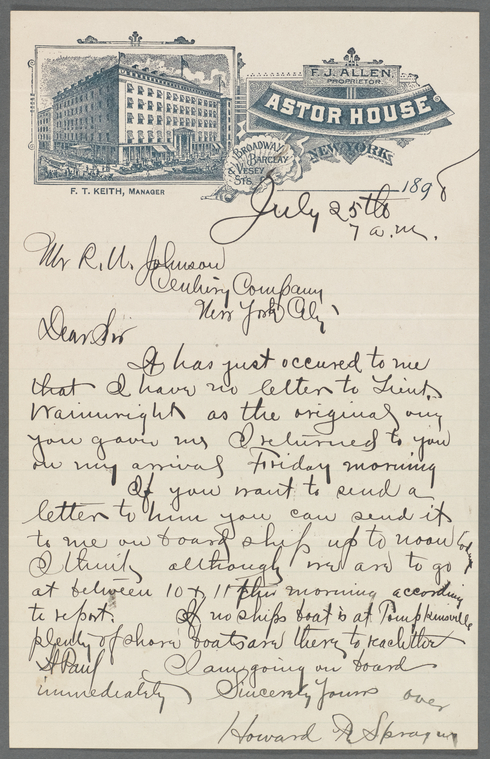 F. J. ALLEN,
PROPRIETOR.
ASTOR HOUSE
BROADWAY
BARCLAY
& VESEY
STS.
NEW YORK
F. T. KEITH, MANAGER
July 25th 1898
7 a.m.
Mr R. U. Johnson
Century Company
New York City
Dear Sir
It has just occured to me
that I have no letter to Lieut.
Wainwright as the original one
you gave me I returned to you
on my arrival Friday morning
If you want to send a
letter to him you can send it
to me on board ship up to noon today
I think although we are to go
at between 10 & 11 this morning according
to report. If no ships boat is at Tompkinsville
plenty of shore boats are there to reach the
St Paul I am going on board
immediately Sincerely Yours
over
Howard F. Sprague